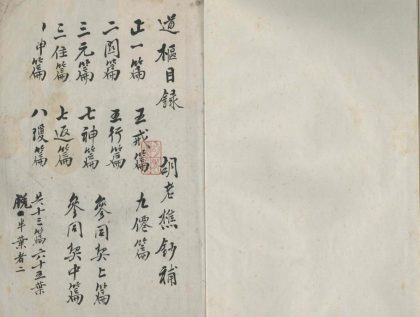 道樞目錄 胡老樵鈔補
正一篇 五戒篇 九僊篇
二篇 五行篇 參同契上篇
三元篇 七神篇 參同契中篇
三住篇 七返篇
篇 八瓊篇
共十三篇六十五葉
脫半葉者二